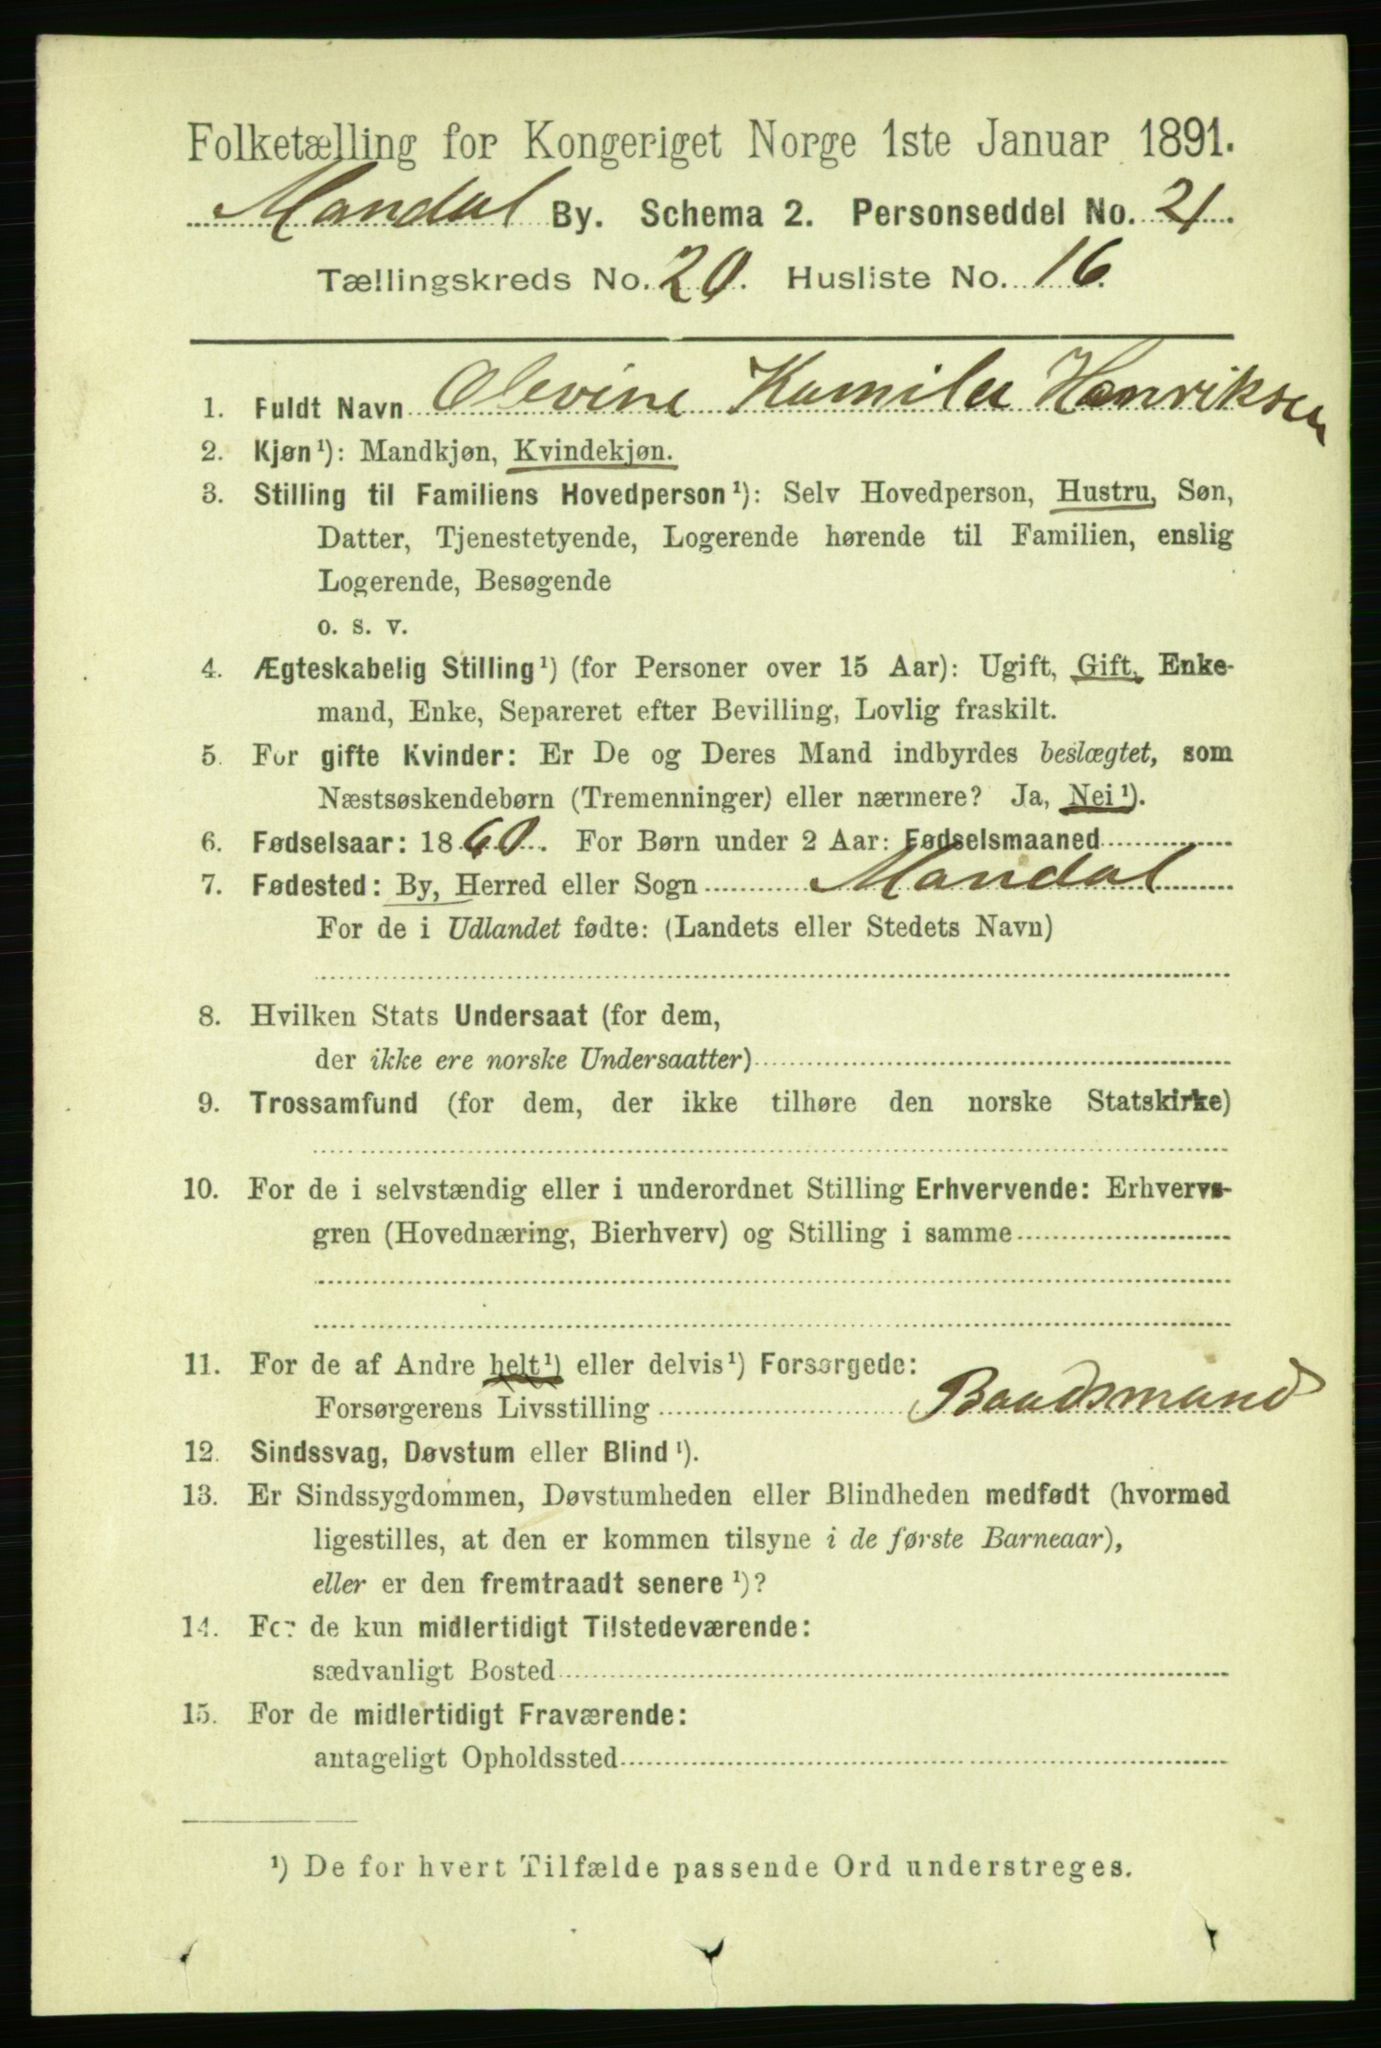 Folketælling for Kongeriget Norge 1ste Januar 1891.
Mandal By. Schema 2. Personseddel No. 21.
Tællingskreds No. 20. Husliste No. 16.
1. Fuldt Navn Olevine Kamilla Henriksen
2. Kjøn¹): Mandkjøn, Kvindekjøn.
3. Stilling til Familiens Hovedperson¹): Selv Hovedperson, Hustru, Søn,
Datter, Tjenestetyende, Logerende hørende til Familien, enslig
Logerende, Besøgende
o. s. v.
4. Ægteskabelig Stilling¹) (for Personer over 15 Aar): Ugift, Gift, Enke-
mand, Enke, Separeret efter Bevilling, Lovlig fraskilt.
5. For gifte Kvinder: Er De og Deres Mand indbyrdes beslægtet, som
Næstsøskendebørn (Tremenninger) eller nærmere? Ja, Nei¹).
6. Fødselsaar: 1860. For Børn under 2 Aar: Fødselsmaaned
7. Fødested: By, Herred eller Sogn Mandal
For de i Udlandet fødte: (Landets eller Stedets Navn)
8. Hvilken Stats Undersaat (for dem,
der ikke ere norske Undersaatter)
9. Trossamfund (for dem, der ikke tilhøre den norske Statskirke)
10. For de i selvstændig eller i underordnet Stilling Erhvervende: Erhvervs-
gren (Hovednæring, Bierhverv) og Stilling i samme
11. For de af Andre helt¹) eller delvis¹) Forsørgede:
Forsørgerens Livsstilling Baadsmand
12. Sindssvag, Døvstum eller Blind¹).
13. Er Sindssygdommen, Døvstumheden eller Blindheden medfødt (hvormed
ligestilles, at den er kommen tilsyne i de første Barneaar),
eller er den fremtraadt senere¹)?
14. For de kun midlertidigt Tilstedeværende:
sædvanligt Bosted
15. For de midlertidigt Fraværende:
antageligt Opholdssted
¹) De for hvert Tilfælde passende Ord understreges.